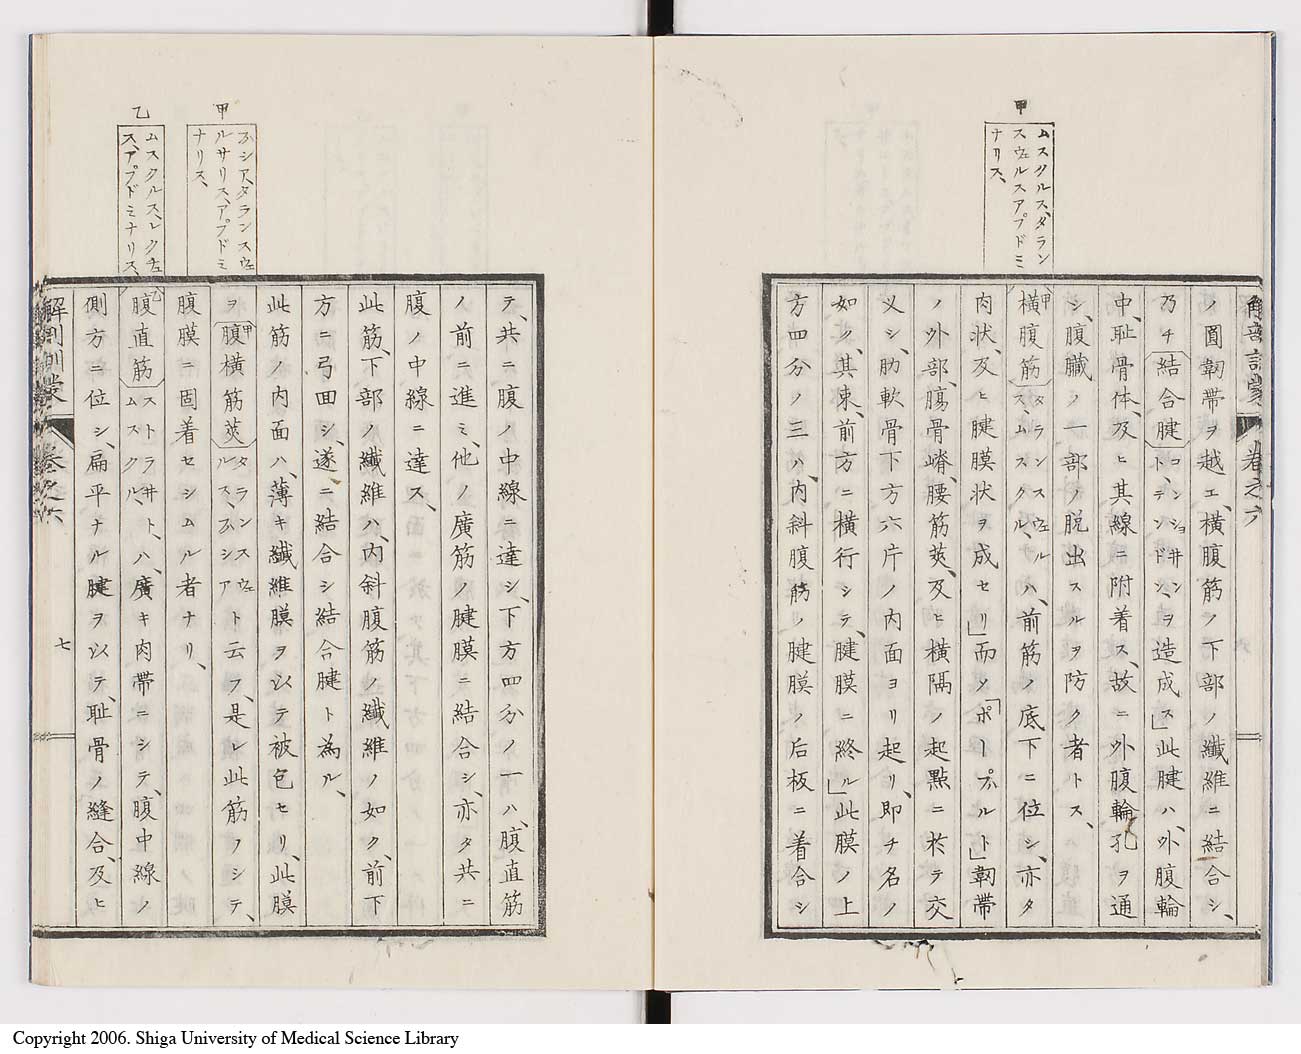 甲
ムスクルス、ダラン
スウェルスアプドミ
ナリス、
ノ圓韌帶ヲ越エ、橫腹筋ノ下部ノ纎維ニ結合シ、
乃チ結合腱コンショサントデンドンシ、ヲ造成ス」此腱ハ、外腹輪
中、耻骨体、及ヒ其線ニ附着ス、故ニ外腹輪孔ヲ通
シ、腹臓ノ一部ノ脱出スルヲ防ク者トス、
甲橫腹筋タランスウェルスムスクル、ハ、前筋ノ底下ニ位シ、亦タ
肉状、及ヒ腱膜状ヲ成セリ」而ノ「ポープルト」韌帶
ノ外部、腸骨嵴、腰筋莢、及ヒ橫隔ノ起點ニ於テ交
乂シ、肋軟骨下方六片ノ内面ヨリ起リ、即チ名ノ
如ク、其束、前方ニ橫行シテ、腱膜ニ終ル」此膜ノ上
方四分ノ三ハ、内斜腹筋ノ腱膜ノ后板ニ着合シ
解剖訓蒙
卷之六
甲
ハシア、タランスウェ
ルサリス、アプドミ
ナリス、
乙
ムスクルス、レクチュ
ス、アプドミナリス、
テ、共ニ腹ノ中線ニ達シ、下方四分ノ一ハ、腹直筋
ノ前ニ進ミ、他ノ廣筋ノ腱膜ニ結合シ、亦タ共ニ
腹ノ中線ニ達ス、
此筋、下部ノ纎維ハ、内斜腹筋ノ纎維ノ如ク、前下
方ニ弓回シ、遂ニ結合シ結合腱ト為ル、
此筋ノ内面ハ、薄キ纎維膜ヲ以テ被包セリ、此膜
ヲ甲腹橫筋莢タランスウェルス、ハシアト云フ、是レ此筋ノシテ、
腹膜ニ固着セシムル者ナリ、
乙腹直筋ストラサト、ムスクル、ハ、廣キ肉帶ニシテ、腹中線ノ
側方ニ位シ、扁平ナル腱ヲ以テ、耻骨ノ縫合、及ヒ
解剖訓蒙
卷之六
七
Copyright 2006. Shiga University of Medical Science Library